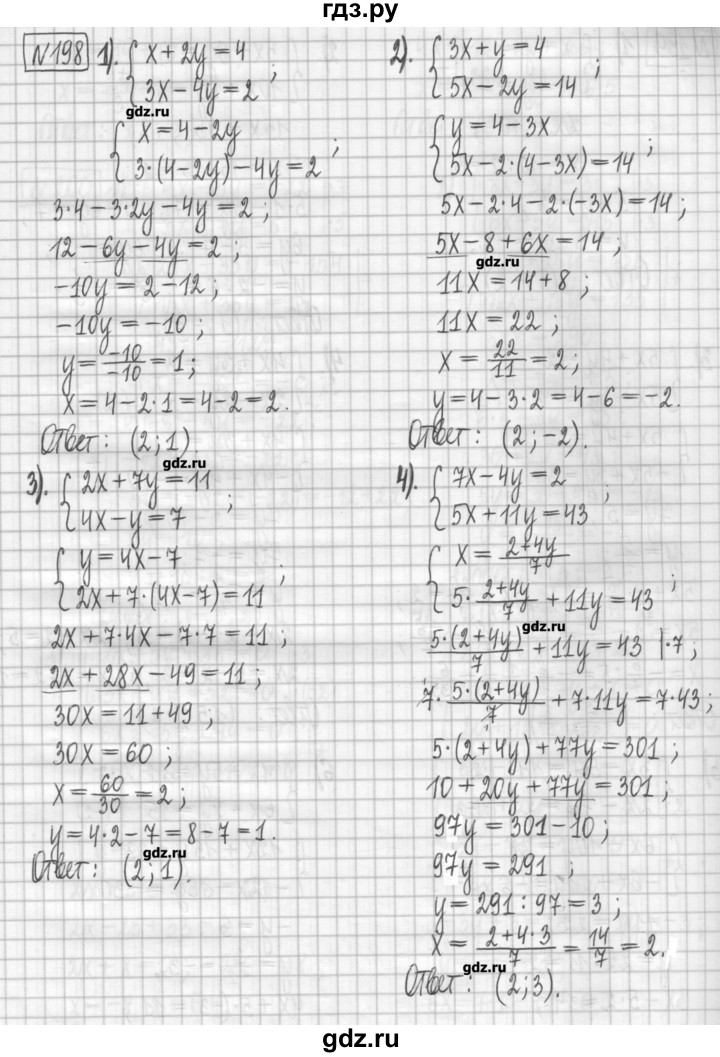 гдз.ру
№198 1). { x + 2y = 4
3x − 4y = 2 ;
gdz.ru
{ x = 4 − 2y
3·(4 − 2y) − 4y = 2 ;
3·4 − 3·2y − 4y = 2 ;
12 − 6y − 4y = 2 ;
−10y = 2 − 12 ;
−10y = −10 ;
y = −10/−10 = 1 ;
x = 4 − 2·1 = 4 − 2 = 2.
Ответ: (2; 1)
gdz.ru
2). { 3x + y = 4
5x − 2y = 14 ;
{ y = 4 − 3x
5x − 2·(4 − 3x) = 14 ;
5x − 2·4 − 2·(−3x) = 14 ;
5x − 8 + 6x = 14 ;
gdz.ru
11x = 14 + 8 ;
11x = 22 ;
x = 22/11 = 2 ;
y = 4 − 3·2 = 4 − 6 = −2.
Ответ: (2; −2).
3). { 2x + 7y = 11
4x − y = 7 ;
{ y = 4x − 7
2x + 7·(4x − 7) = 11 ;
2x + 7·4x − 7·7 = 11 ;
2x + 28x − 49 = 11 ;
30x = 11 + 49 ;
30x = 60 ;
x = 60/30 = 2 ;
y = 4·2 − 7 = 8 − 7 = 1.
gdz.ru
Ответ: (2; 1).
4). { 7x − 4y = 2
5x + 11y = 43 ;
{ x = 2+4y/7
5· 2+4y/7 + 11y = 43 ;
gdz.ru
5·(2+4y)/7 + 11y = 43 |·7 ;
7· 5·(2+4y)/7 + 7·11y = 7·43 ;
5·(2+4y) + 77y = 301 ;
10 + 20y + 77y = 301 ;
97y = 301 − 10 ;
97y = 291 ;
y = 291 : 97 = 3 ;
x = 2+4·3/7 = 14/7 = 2.
gdz.ru
Ответ: (2; 3).
gdz.ru